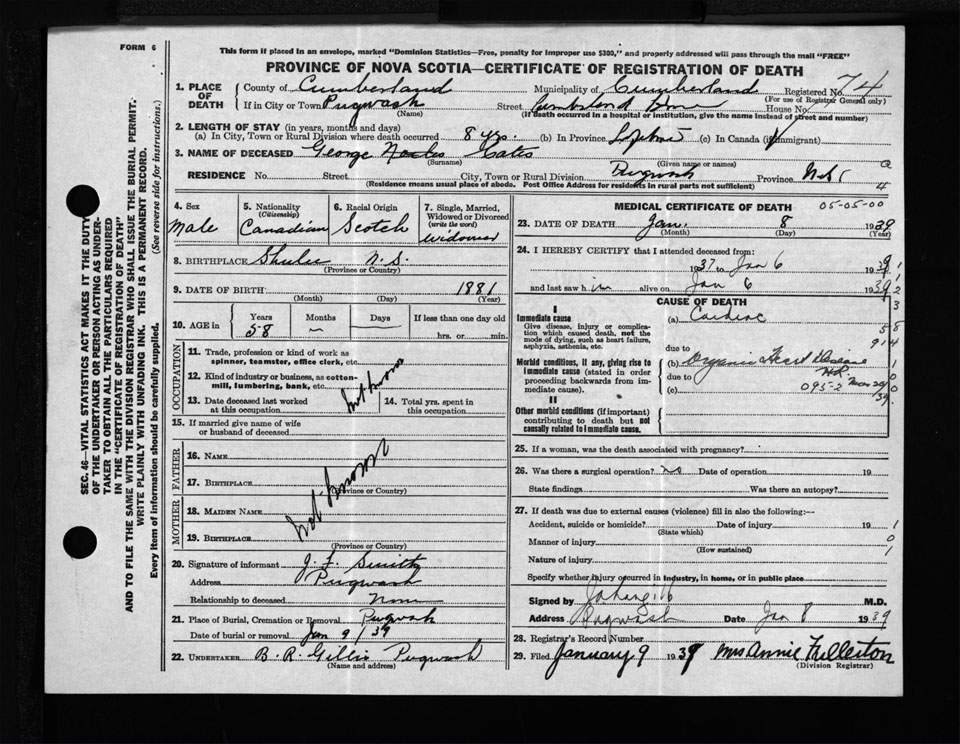 FORM 6
This form if placed in an envelope, marked "Dominion Statistics—Free, penalty for improper use $300," and properly addressed will pass through the mail "FREE"
PROVINCE OF NOVA SCOTIA—CERTIFICATE OF REGISTRATION OF DEATH
SEC. 46—VITAL STATISTICS ACT MAKES IT THE DUTY
OF THE UNDERTAKER OR PERSON ACTING AS UNDER-
TAKER TO OBTAIN ALL THE PARTICULARS REQUIRED
IN THE "CERTIFICATE OF REGISTRATION OF DEATH"
AND TO FILE THE SAME WITH THE DIVISION REGISTRAR WHO SHALL ISSUE THE BURIAL PERMIT.
WRITE PLAINLY WITH UNFADING INK. THIS IS A PERMANENT RECORD.
Every item of information should be carefully supplied. (See reverse side for instructions.)
1. PLACE OF DEATH
County of Cumberland Municipality of Cumberland Registered No. 74
(For use of Registrar General only)
If in City or Town Pugwash Street House No.
(Name) (If death occurred in a hospital or institution, give the name instead of street and number)
2. LENGTH OF STAY (in years, months and days)
(a) In City, Town or Rural Division where death occurred 8 yrs. (b) In Province Lifetime (c) In Canada (if immigrant)
3. NAME OF DECEASED George
(Surname) (Given name or names)
RESIDENCE No. Street City, Town or Rural Division Pugwash Province N.S.
(Residence means usual place of abode. Post Office Address for residents in rural parts not sufficient)
4. Sex
Male
5. Nationality
(Citizenship)
Canadian
6. Racial Origin
Scotch
7. Single, Married, Widowed or Divorced
(write the word)
Widower
8. BIRTHPLACE Shulie N.S.
(Province or Country)
9. DATE OF BIRTH 1881
(Month) (Day) (Year)
10. AGE in
Years Months Days If less than one day old
58 — — hrs. or min.
OCCUPATION
11. Trade, profession or kind of work as
spinner, teamster, office clerk, etc.
12. Kind of industry or business, as cotton-
mill, lumbering, bank, etc.
Not known
13. Date deceased last worked
at this occupation
14. Total yrs. spent in
this occupation
15. If married give name of wife
or husband of deceased
FATHER
16. Name
17. Birthplace
(Province or Country)
Not known
MOTHER
18. Maiden Name
19. Birthplace
(Province or Country)
20. Signature of informant J. F. Smith
Address Pugwash
Relationship to deceased None
21. Place of Burial, Cremation or Removal Pugwash
Date of burial or removal Jan 9/39
22. Undertaker B. R. Gillis Pugwash
(Name and address)
MEDICAL CERTIFICATE OF DEATH 05-05-00
23. DATE OF DEATH Jan. 8 1939
(Month) (Day) (Year)
24. I HEREBY CERTIFY that I attended deceased from:
1937 to Jan 6 1939
and last saw him alive on Jan 6 1939
CAUSE OF DEATH
I
Immediate cause
Give disease, injury or complica-
tion which caused death, not the
mode of dying, such as heart failure,
asphyxia, asthenia, etc.
(a) Cardiac
due to
Morbid conditions, if any, giving rise to
immediate cause (stated in order
proceeding backwards from im-
mediate cause).
(b) Organic Heart Disease
due to
(c) 095-2
II
Other morbid conditions (if important)
contributing to death but not
causally related to immediate cause.
25. If a woman, was the death associated with pregnancy?
26. Was there a surgical operation? no Date of operation 19
State findings Was there an autopsy?
27. If death was due to external causes (violence) fill in also the following:—
Accident, suicide or homicide? Date of injury 19
(State which)
Manner of injury
(How sustained)
Nature of injury
Specify whether injury occurred in industry, in home, or in public place
Signed by M.D.
Address Pugwash Date Jan 8 1939
28. Registrar's Record Number
29. Filed January 9 1939 Mrs Annie Fullerton
(Division Registrar)